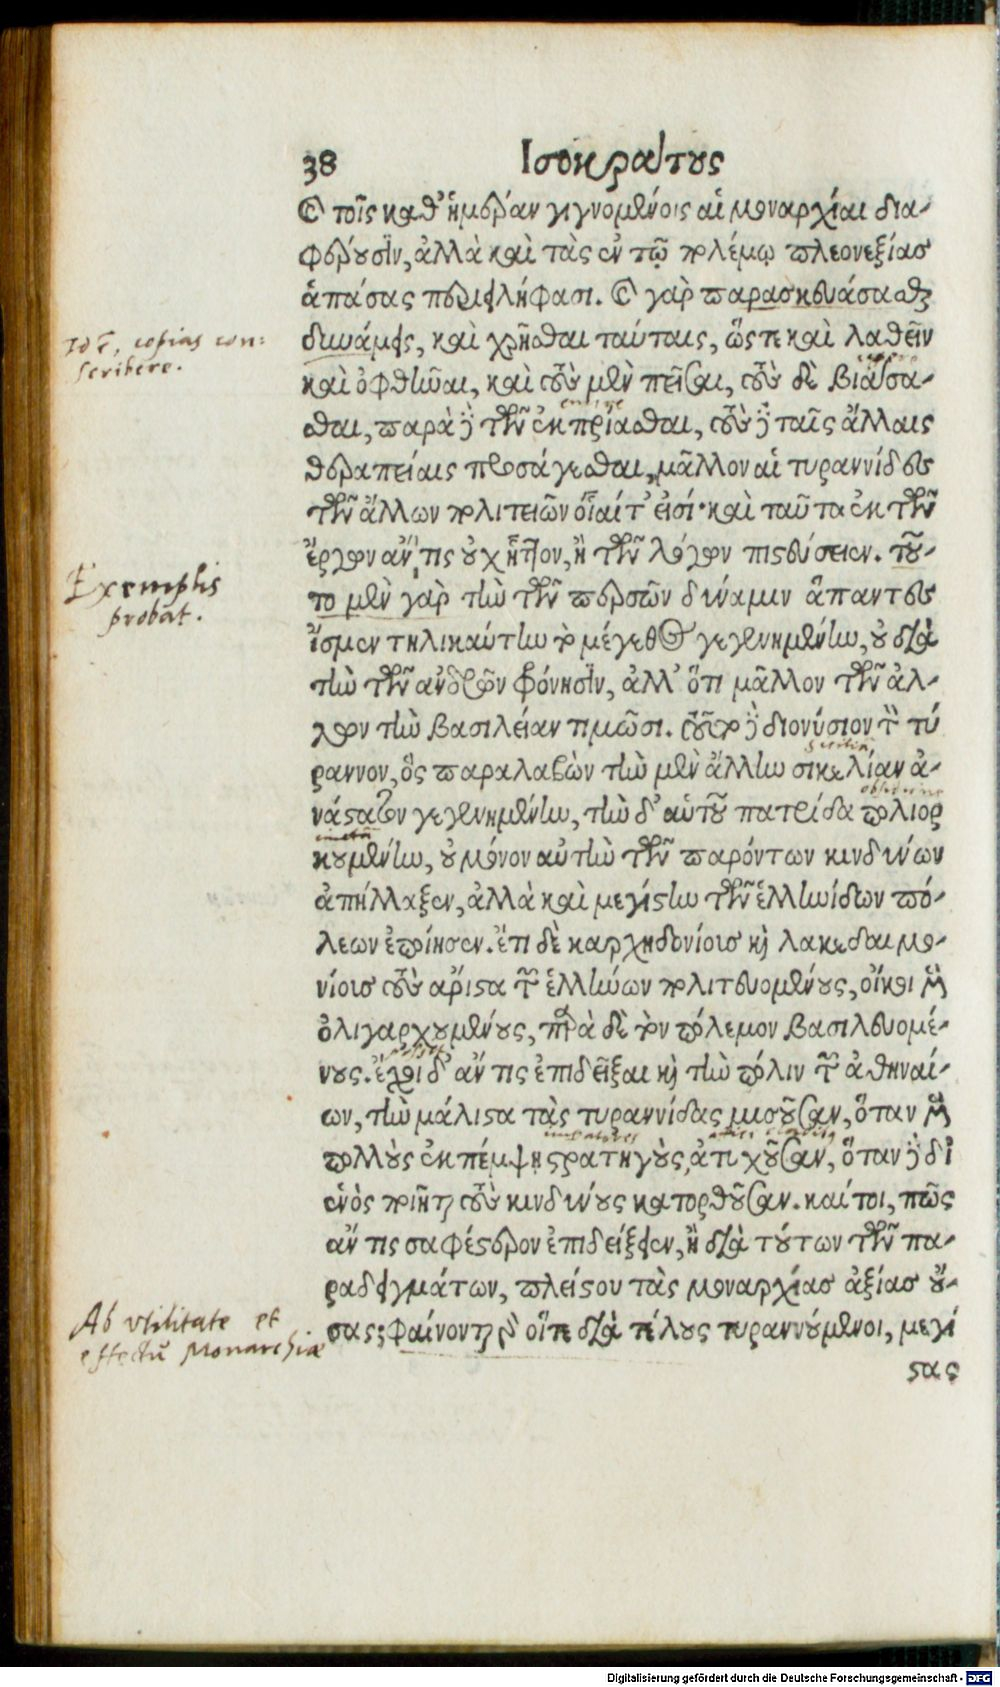 38 Ισοκράτους
ἐν τοῖς καθ' ἡμέραν γιγνομένοις αἱ μοναρχίαι δια-
φέρουσιν, ἀλλὰ καὶ τὰς ἐν τῷ πολέμῳ πλεονεξίας
ἁπάσας περιειλήφασι. καὶ γὰρ παρασκευάσασθαι
δυνάμεις, καὶ χρῆσθαι ταύταις, ὥστε καὶ λαθεῖν
καὶ ὀφθῆναι, καὶ τοὺς μὲν πεῖσαι, τοὺς δὲ βιάσα-
σθαι, παρὰ δὲ τῶν ἐκπρίασθαι, τοὺς δὲ ταῖς ἄλλαις
θεραπείαις προσάγεσθαι, μᾶλλον αἱ τυραννίδες
τῶν ἄλλων πολιτειῶν οἷαί τ' εἰσί· καὶ ταῦτα ἐκ τῶν
ἔργων ἄν τις οὐχ ἧττον, ἢ τῶν λόγων πιστεύσειεν. τοῦ-
το μὲν γὰρ τὴν τῶν περσῶν δύναμιν ἅπαντες
ἴσμεν τηλικαύτην τὸ μέγεθος γεγενημένην, οὐ διὰ
τὴν τῶν ἀνδρῶν φρόνησιν, ἀλλ' ὅτι μᾶλλον τῶν ἄλ-
λων τὴν βασιλείαν τιμῶσι. τοῦτο δὲ διονύσιον τὸν τύ
ραννον, ὃς παραλαβὼν τὴν μὲν ἄλλην σικελίαν ἀ-
νάστατον γεγενημένην, τὴν δ' αὑτοῦ πατρίδα πολιορ
κουμένην, οὐ μόνον αὐτὴν τῶν παρόντων κινδύνων
ἀπήλλαξεν, ἀλλὰ καὶ μεγίστην τῶν ἑλληνίδων πό-
λεων ἐποίησεν. ἔτι δὲ καρχηδονίους καὶ λακεδαιμο-
νίους τοὺς ἄριστα τῶν ἑλλήνων πολιτευομένους, οἴκοι μὲν
ὀλιγαρχουμένους, παρὰ δὲ τὸν πόλεμον βασιλευομέ-
νους. ἔχοι δ' ἄν τις ἐπιδεῖξαι καὶ τὴν πόλιν τῶν ἀθηναί-
ων, τὴν μάλιστα τὰς τυραννίδας μισοῦσαν, ὅταν μὲν
πολλοὺς ἐκπέμψῃ στρατηγοὺς, ἀτυχοῦσαν, ὅταν δὲ δι
ἑνὸς ποιῆται τοὺς κινδύνους κατορθοῦσαν. καίτοι, πῶς
ἄν τις σαφέστερον ἐπιδείξειεν, ἢ διὰ τούτων τῶν πα-
ραδειγμάτων, πλείστου τὰς μοναρχίας ἀξίας οὔ-
σας; φαίνονται γὰρ οἵ τε διὰ τέλους τυραννούμενοι, μεγί
στας
id est, copias con:
scribere.
Exemplis
probat.
Ab utilitate et
effectu Monarchiæ
Digitalisierung gefördert durch die Deutsche Forschungsgemeinschaft - DFG